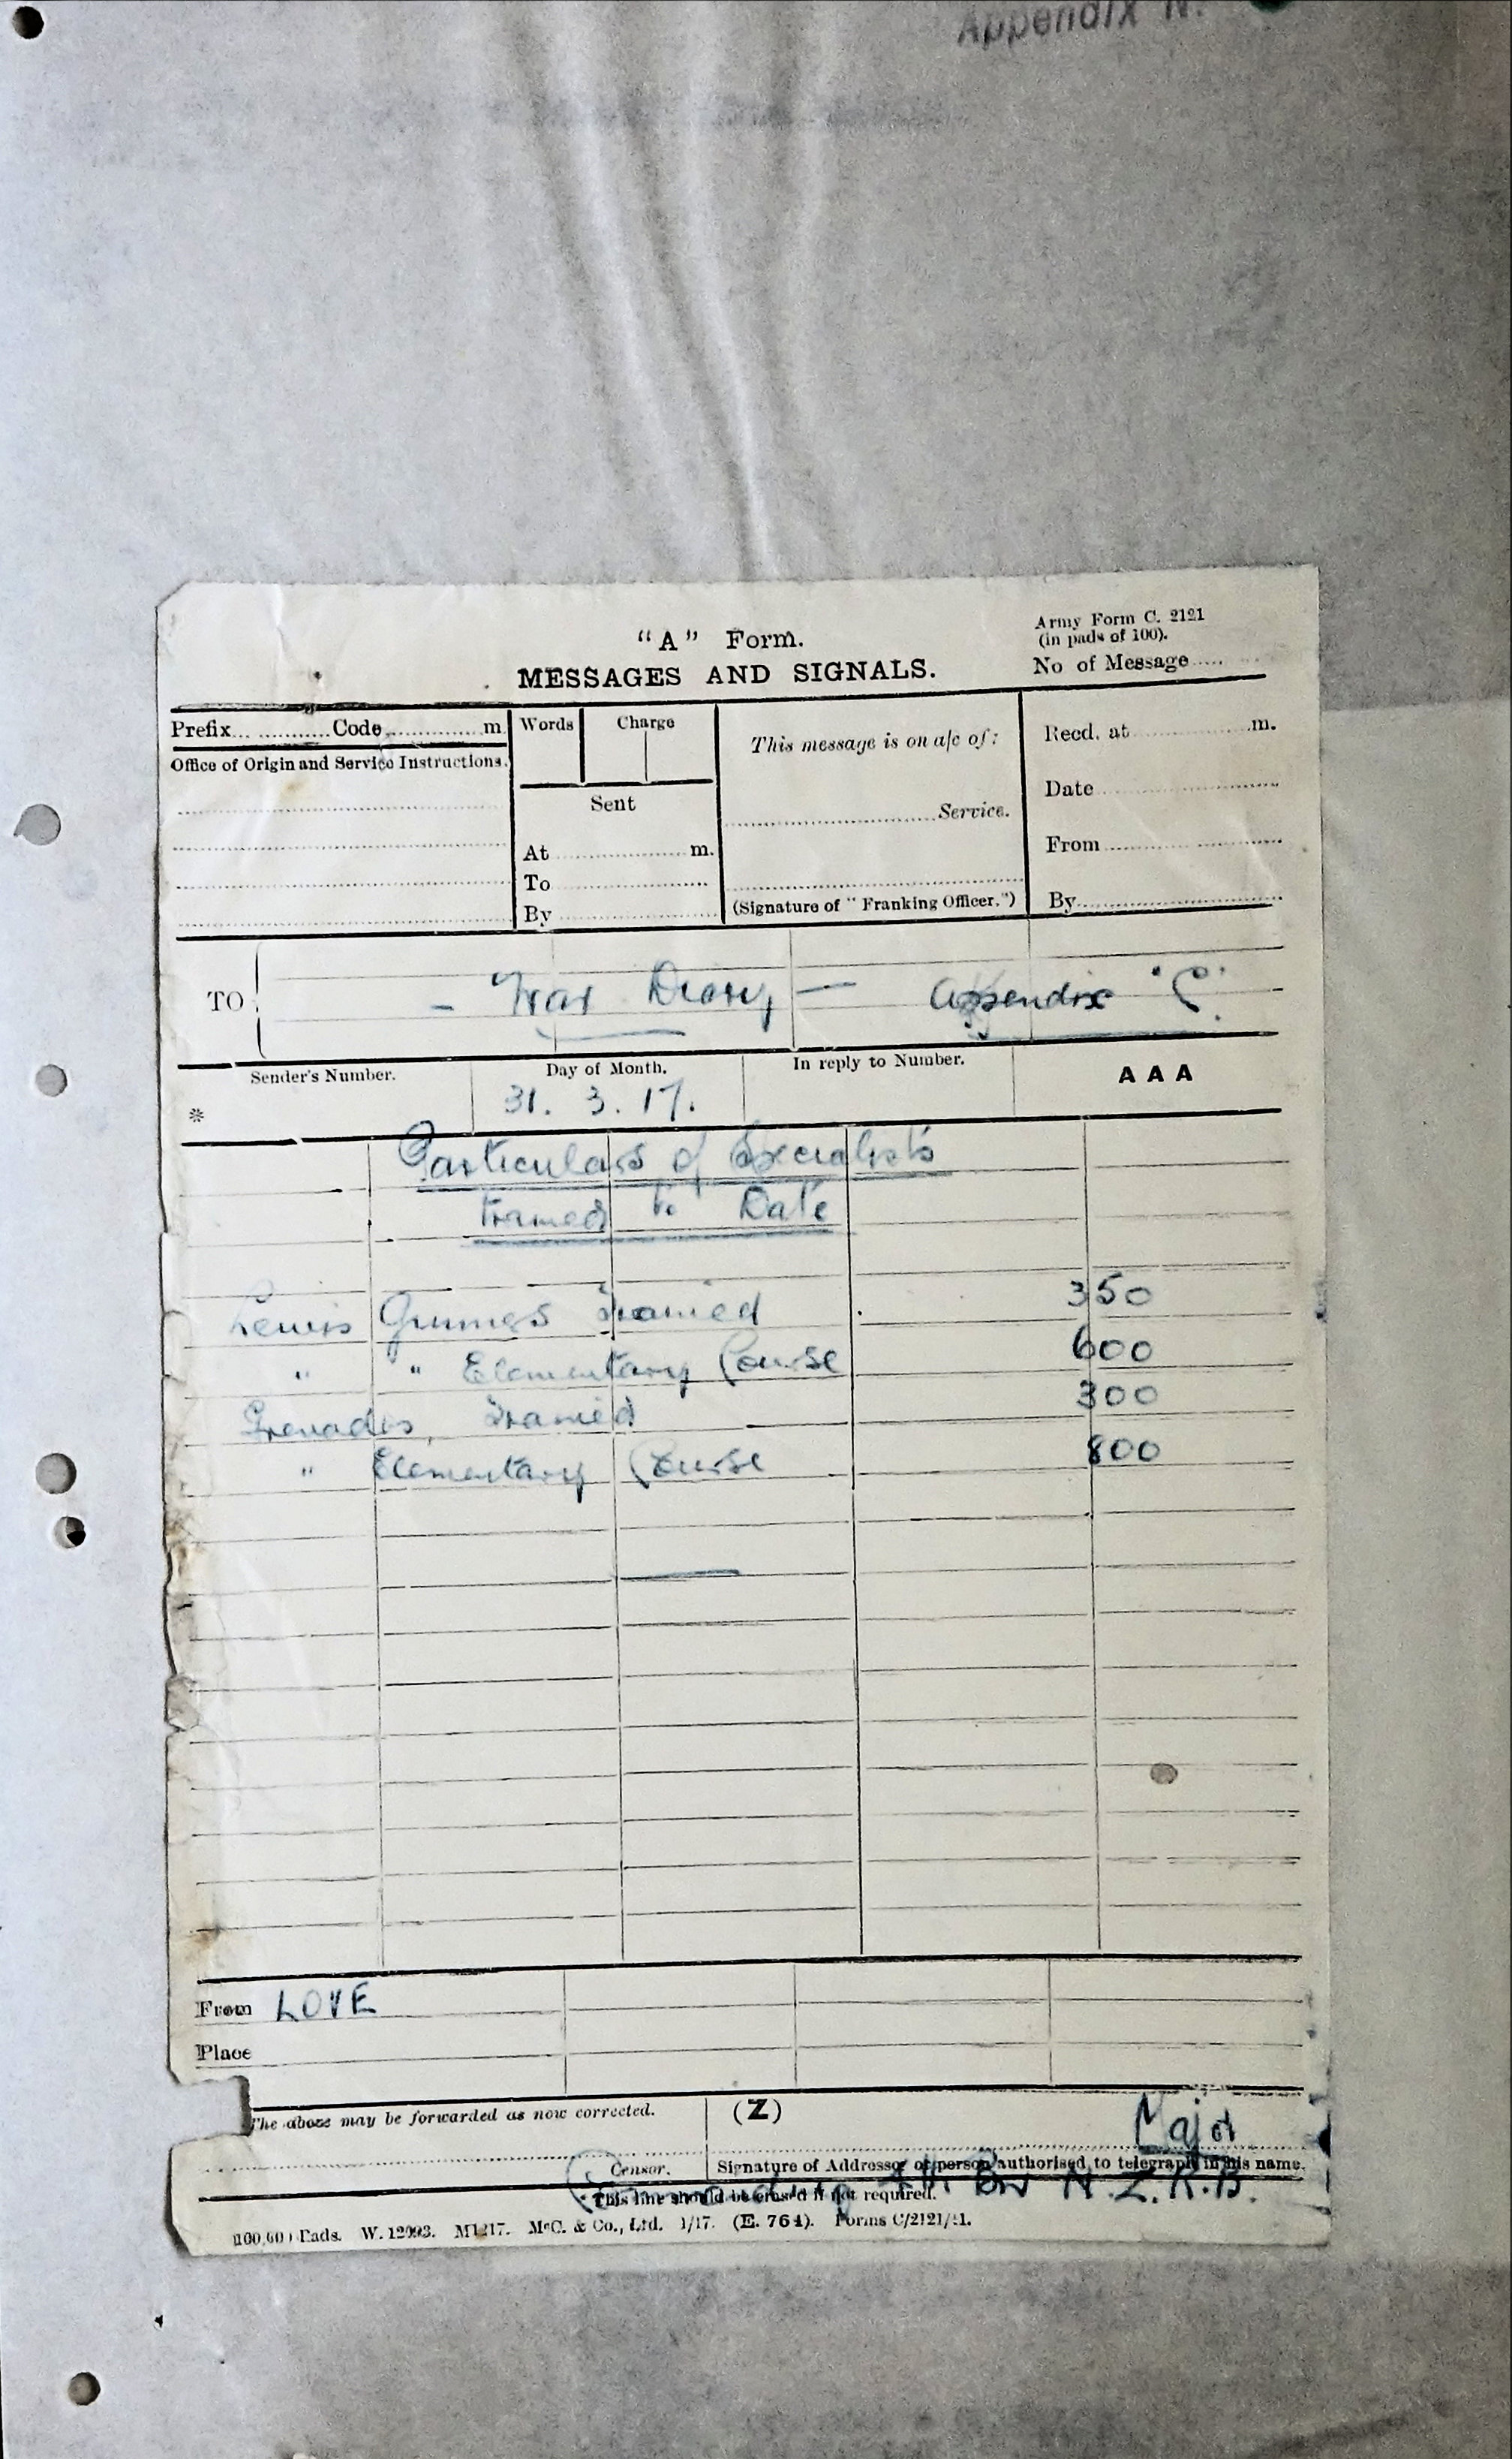 Appendix N.
"A" Form.
Army Form C. 2121
(in pads of 100).
MESSAGES AND SIGNALS.
No of Message.....
Prefix... ............Code................m
Words
Charge
This message is on a/c of:
Recd. at.....................m.
Office of Origin and Service Instructions.
Sent
Date
Service.
At.....................m.
From
To
By
(Signature of "Franking Officer.")
By
TO
- War Diary - Appendix "C".
Sender's Number.
Day of Month.
In reply to Number.
AAA
*
31. 3. 17.
Particulars of Specialists
trained to Date
Lewis Gunners Trained 350
" " Elementary Course 600
Grenades, Trained 300
" Elementary Course 800
From LOVE
Place
The above may be forwarded as now corrected.
(Z)
Major
Censor.
Signature of Addressor or person authorised to telegraph in his name.
Commanding 4th Bn N.Z.R.B.
* This line should be erased if not required.
100,000 Pads. W. 12093. M1217. McC. & Co., Ltd. 1/17. (E. 764). Forms C/2121/11.